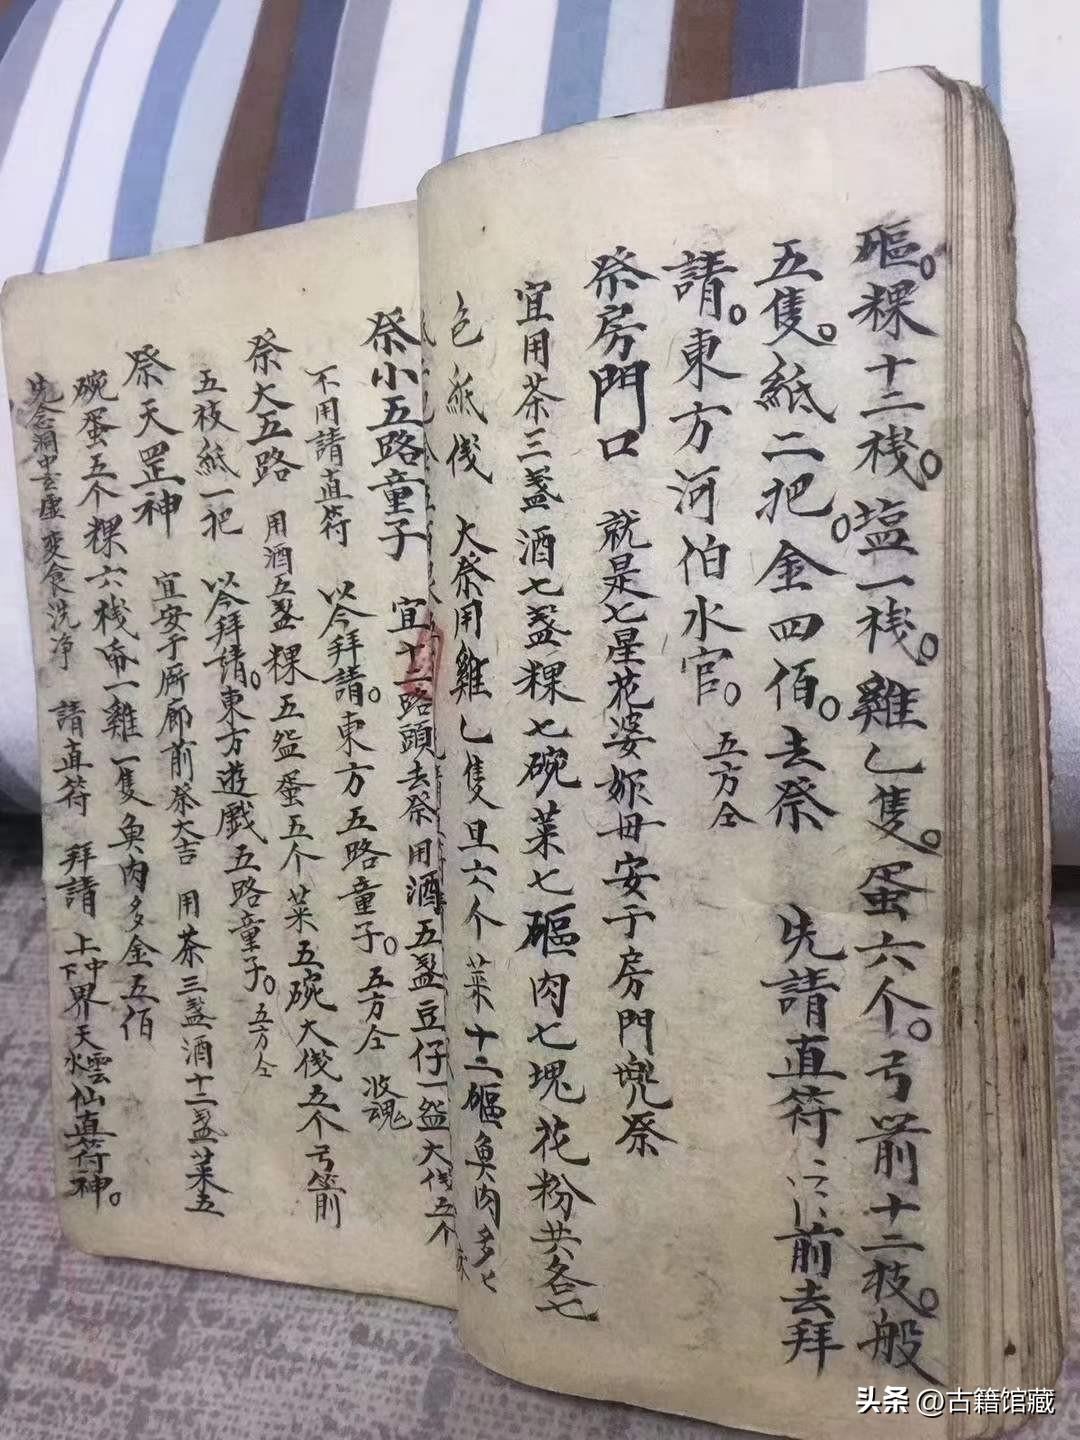 𥐻。粿十二栈。塩一栈。雞乙隻。蛋六个。弓箭十二枝。般
五隻。紙二把。金四佰。去祭 先請直符 前去拜
請。東方河伯水官。五方仝
祭房門口 就是七星花婆妳毋安于房門兜祭
宜用茶三盞酒七盞粿七碗菜七𥐻肉七塊花粉共各七
色紙伐 大祭用雞乙隻旦六个菜十二𥐻魚肉多七
祭小五路童子 宜十二路頭去祭用酒五盞豆仔一盆大伐五个
不用請直符 以今拜請。東方五路童子。五方仝
祭大五路 用酒五盞粿五盆蛋五个菜五碗大伐五个弓箭
五枝紙一把 以今拜請。東方遊戲五路童子。五方仝
祭天罡神 宜安于廊前祭大吉 用茶三盞酒十二盞菜五
碗蛋五个粿六栈 一雞一隻魚肉多金五佰
先念洞中玄虛 变食洗净 請直符 拜請 上中下界天水雲仙直符神。
头条 @古籍馆藏